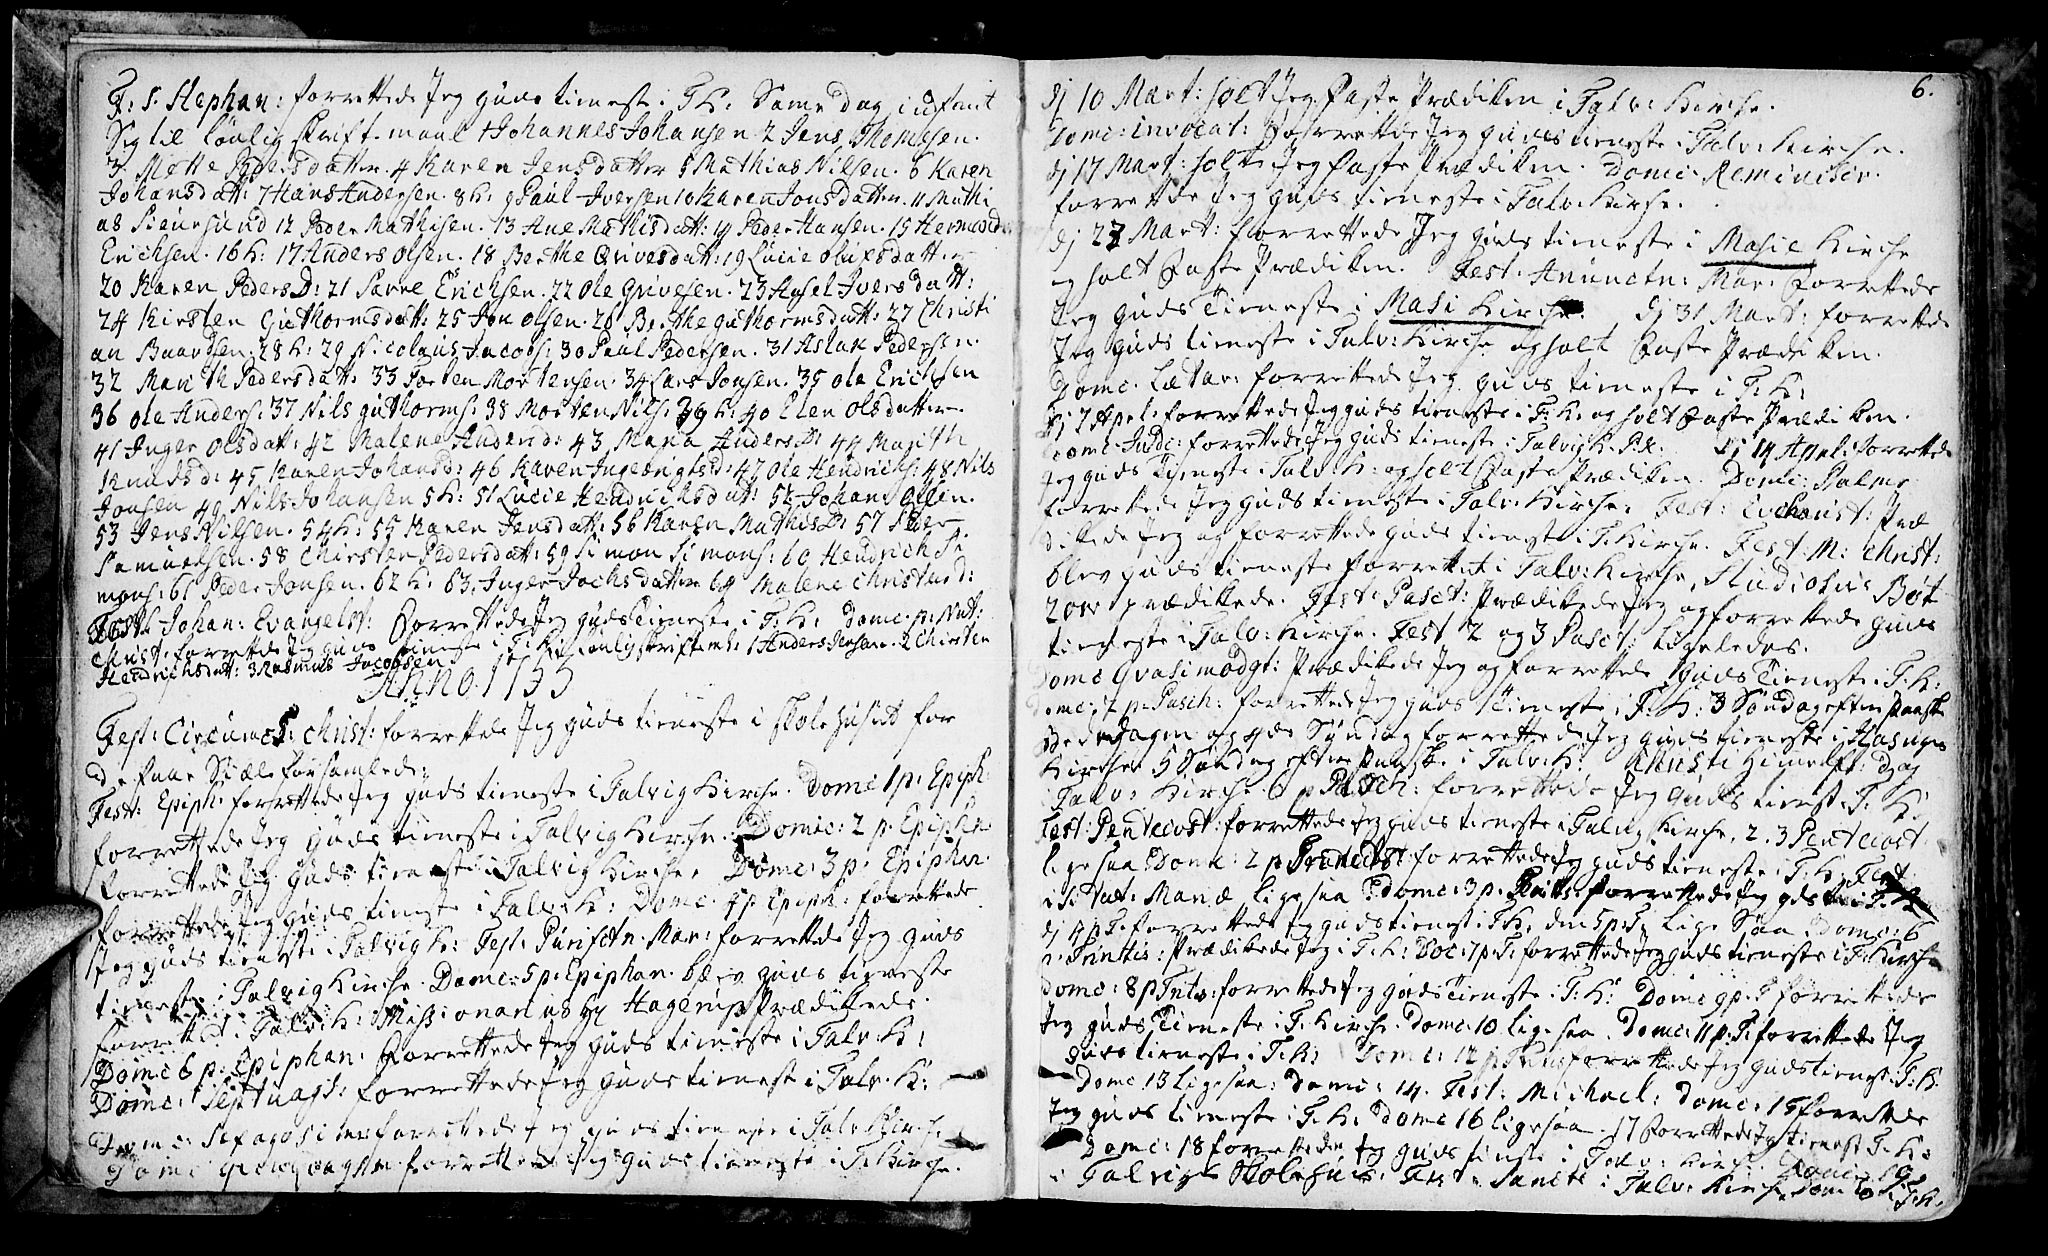 F: S. Stephan: forrettede Jeg Guds tieneste i T: K: Same Dag indfant
Sig til lönlig Skrifte-maal 1 Johannes Johansen 2 Jens Thomesen.
3. Mette Pedersdatter. 4 Karen Jensdatter 5 Mathias Nilsen. 6 Karen
Johansdatt: 7 Hans Andersen. 8 K: 9 Paul Iversen 10 Karen Jonsdatter. 11 Mathi
as 12 Peder Mathisen. 13 Ane Mathisdatt: 14 Peder Hansen. 15
Erichsen. 16 K: 17 Anders Olsen. 18 Berthe 19 Lucie Olufsdatter
20 Karen Peders D: 21 Erichsen. 22 Ole 23 Axsel Iversdatt:
24 Kirsten Guthormsdatt: 25 Jon Olsen. 26 Berthe Guthormsdatt: 27 Christi
an Baardsen. 28 K: 29 Nicolaus Jacobs: 30 Paul Pedersen. 31 Aslak Pedersen.
32 Marith Pedersdatt: 33 Morten Mortensen. 34 Lars Jonsen. 35 Ole Erichsen
36 Ole Anders: 37 Nils Guthorms: 38 Morten Nils: 39 K: 40 Elen Olsdatter
41 Inger Olsdatt: 42 Malene Andersd: 43 Maria Anders D: 44 Marith
Knudsd: 45 Karen Johansd: 46 Karen Ingebrigtsd: 47 Ole Hendrichs: 48 Nils
Jonsen 49 Nils Johansen 5 K: 51 Lucie Hendrichsdatt: 52 Johan Ollin.
53 Jens Nilsen. 54 K: 55 Karen Jonsdatt: 56 Karen Mathis D: 57 Peder
Samuelsen. 58 Chirsten Pedersdatt: 59 Simon Simons: 60 Hendrich Si
mons: 61 Peder Jonsen. 62 K: 63. Inger Jochsdatter 64 Malene Christensd:
Fest: Johan: Evangelist: Forrettede Jeg Guds Tieneste i T: K: Domc. p: Nat:
Christ: forrettede Jeg Guds tieneste i T: K: lönlig Skriftem: 1 Anders Jensen. 2 Chirsten
Hendrichsdatt: 3 Rasmus Jacobsen
Anno. 1755
Fest: Circumcs: Christ: forrettede Jeg Guds tieneste i Skolehuset for
de faae Siæle forsamlede.
Fest: Epiph: forrettede Jeg Guds tieneste i Talvig Kirche. Domc 1 p: Epiph:
forrettede Jeg Guds tieneste i Talvig Kirche. Domic: 2 p: Epiphan
forrettede Jeg Guds tieneste i Talvig Kirche. Domc: 3 p. Epiphan.
forrettede Jeg Guds tieneste i Talv: K: Domc. 4 p. Epiph: forrettede
Jeg Guds tieneste i Talvig K: Fest: Purifctn. Mar: forrettede Jeg Guds
tieneste i Talvig Kirche. Domc: 5 p: Epiphan. blev Guds tieneste
forrettet i Talv: K: Missionarius Hr Hagerup Prædikede.
Domc 6 p: Epiphan: Forrettede Jeg Guds tieneste i Talv: K:
Domc: Septuags: forrettede Jeg Guds tieneste i Talv. K:
Domc: forrettede Jeg Guds tieneste i Talv Kirche
Domc forrettede Jeg Guds tieneste i T: Kirche.
6.
Dj 10 Mart: holt Jeg Faste Prædiken i Talv: Kirche.
Domc: Invocat: Forrettede Jeg Guds tieneste i Talv: Kirche.
Dj 17 Mart: holte Jeg Faste Prædiken. Domc. Reminiscer.
forrettede Jeg Guds tieneste i Talv: Kirche.
Dj Mart: forrettede Jeg Guds tieneste i Masie Kirche
og holt Faste Prædiken. Fest: Anunctn: Mar: Forrettede
Jeg Guds Tieneste i Masi Kirche. Dj 31 Mart: forrettede
Jeg Guds tieneste i Talv: Kirche og holt Faste Prædiken.
Domc. Lætar: forrettede Jeg Guds tieneste i T: K:
Dj 7 Apl: forrettede Jeg Guds tieneste i T: K: og holt Faste Prædiken.
Domc Judc: forrettede Jeg Guds tieneste i Talvig K. Dj 14 Appl: forrettede
Jeg Guds Tieneste i Talv: K: og holt Faste Prædiken. Domc: Palmr
forrettede Jeg Guds tieneste i Talv: Kirche. Fest: Euchairist: Præ
dikede Jeg og forrettede Guds tieneste i T: Kirche. Fest: M: Christ:
blev Guds tieneste forrettet i Talv: Kirche, Studiosus
Prædikede. Fest: Pasct: Prædikede Jeg og forrettede Guds
tieneste i Talv: Kirche. Fest 2 og 3 Pasct: Ligeledes.
Domc Qvasimodgt: Prædikede Jeg og forrettede Guds Tieneste i T: K:
Domc: 2 p: Pasch: forrettede Jeg Guds tieneste i T: K: 3 Søndag efter Paaske
Bededagen og 4de Søndag forrettede Jeg Guds tieneste i Hasvogs
Kirche. 5 Søndag efter Paaske i Talv: K: Christi Himelft: Dag
i Talv: Kirche. 6 p Pasch: forrettede Jeg Guds tieneste T: K:
Fest: Pentecost: forrettede Jeg Guds tieneste i Talvig Kirche. 2. 3 Pentecost
ligesaa Domc: 2 p Pentecost: forrettede Jeg Guds tieneste T: K: Fest
Mariæ ligesaa: Domc: 3 p: forrettede Jeg i T: K
Dj 4 p T: forrettede Jeg Guds tieneste i T K: den 5 p: T: lige Saa Domc: 6
p. Trinitis: Prædikede Jeg i T: K: Doc: 7 p. T: forrettede Jeg Guds tieneste i T: Kirche
Domc: 8 p Tnts: forrettede Jeg Guds Tieneste i T: K: Domc 9 p. T forrettede
Jeg Guds Tieneste i T: Kirche. Domc: 10 ligesaa. Domc: 11 p: T: forrettede Jeg
Guds tieneste i T: K: Domc: 12 p forrettede Jeg Guds tieneste T: K:
Domc 13 ligesaa: Domc: 14. Fest: Michael: Domc: 15 forrettede
Jeg Guds tieneste i T: K: Domc 16 ligesaa. 17 forrettede Jeg tieneste T: K:
Domc: 18 forrettede Jeg Guds tieneste i Talv: Kirch. Domc: 19
i Talvigs Skolehus. Fest: Sanct: i Talv: Kirche Domc i T: K.